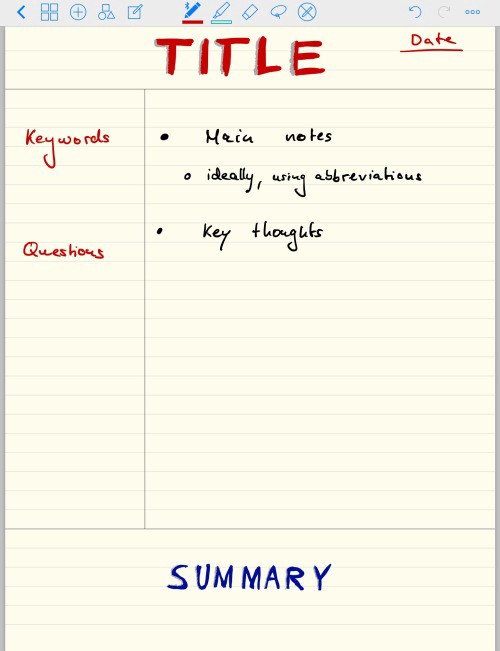 TITLE
Date
Keywords
• Main notes
◦ ideally, using abbreviations
• Key thoughts
Questions
SUMMARY